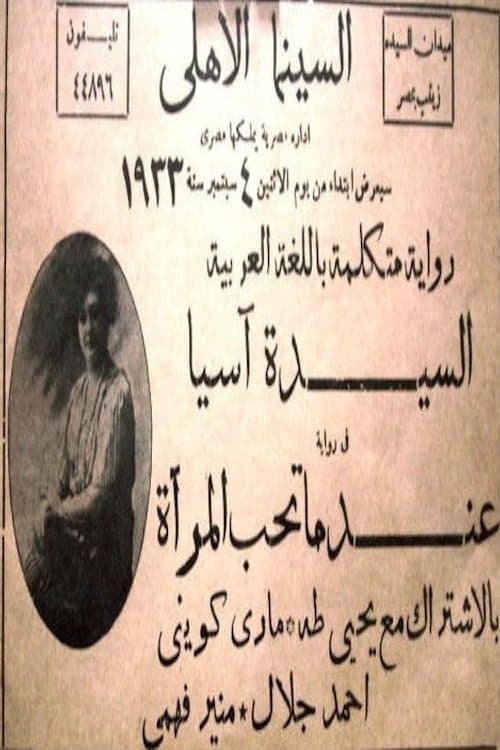 ميدان السيده
زينب بمصر
السينما الاهلى
تليفون
٤٤٨٩٦
اداره مصرية يملكها مصرى
سيعرض ابتداء من يوم الاثنين ٤ سبتمبر سنة ١٩٣٣
رواية متكلمة باللغة العربية
السيدة آسيا
فى رواية
عندما تحب المرأة
بالاشتراك مع يحيى طه * مارى كوينى
احمد جلال * منير فهمى